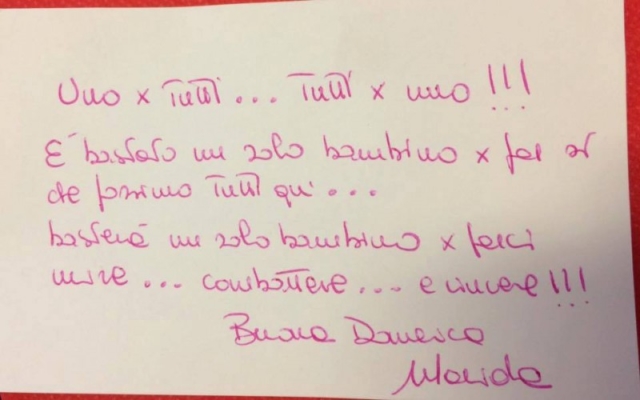 Uno x Tutti ... Tutti x uno !!!
E' bastato un solo bambino x far sì
che fossimo Tutti qui ...
basterà un solo bambino x farci
unire ... combattere ... e vincere !!!
Buona Domenica